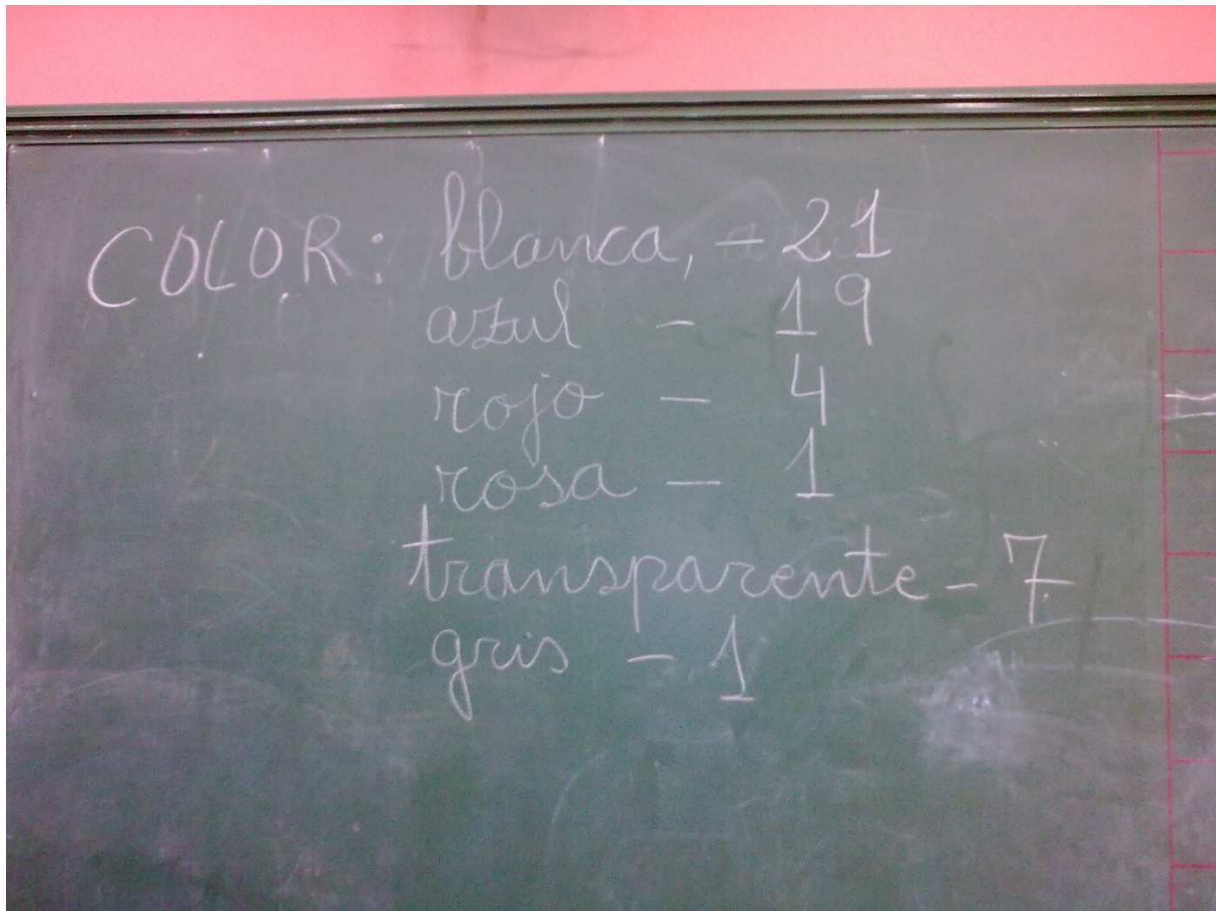 COLOR: blanca, - 21
azul - 19
rojo - 4
rosa - 1
transparente - 7
gris - 1